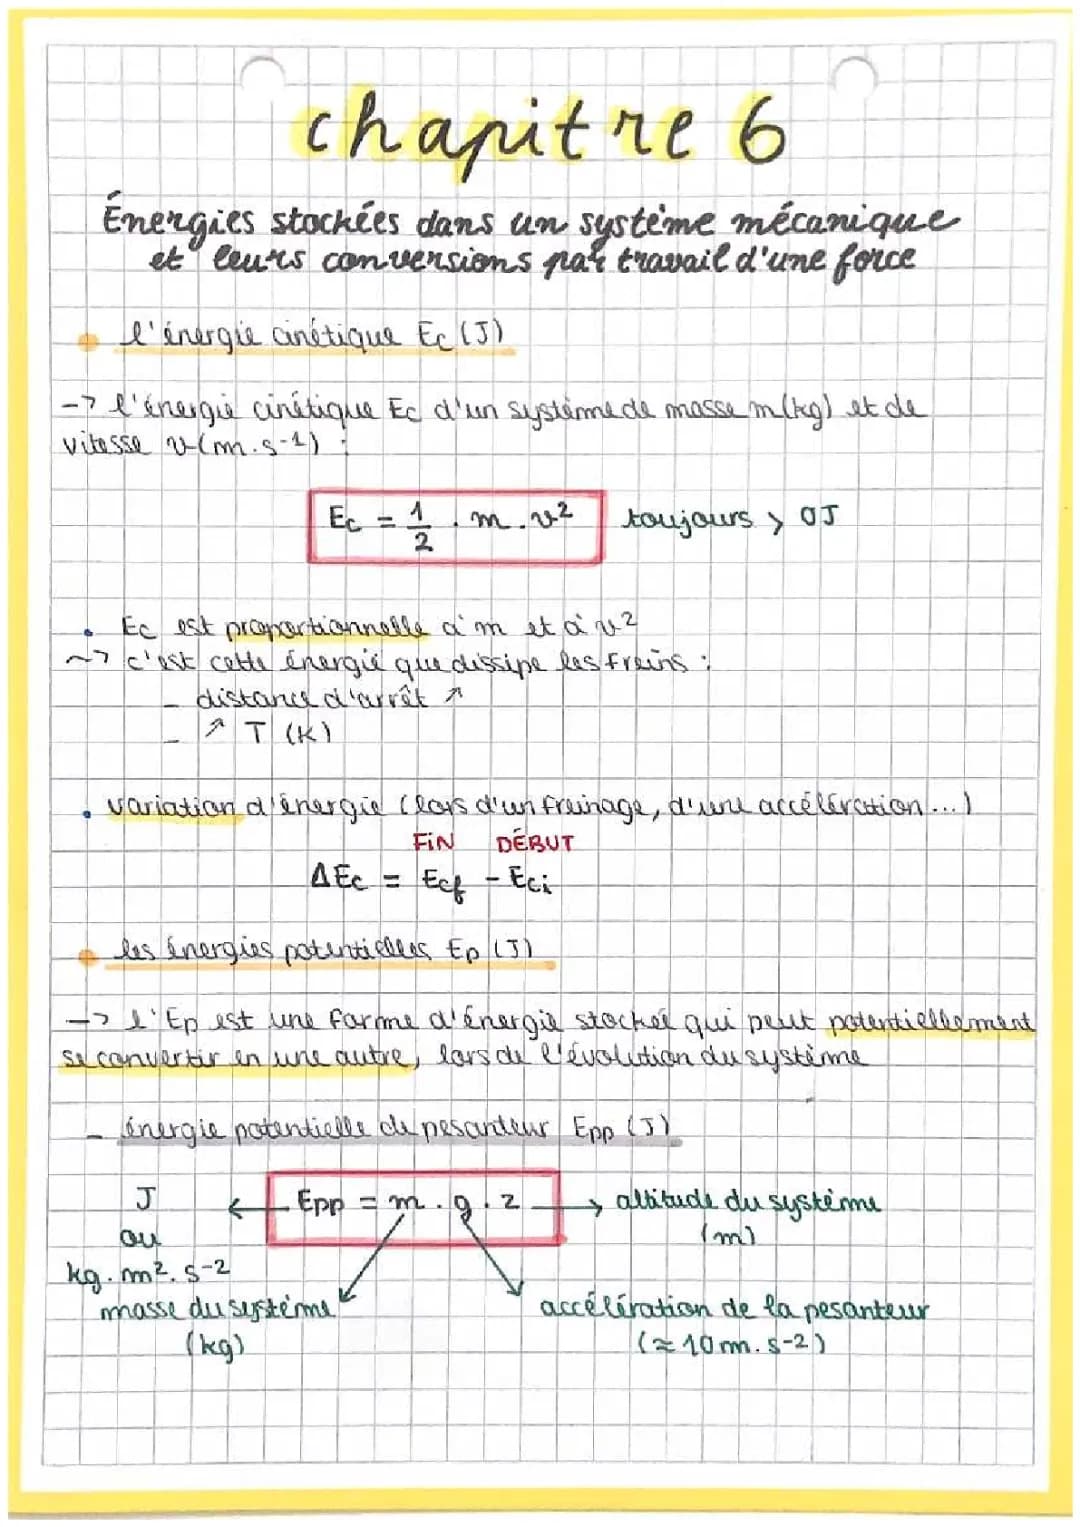 chapitre 6
Énergies stockées dans un système mécanique
et leurs conversions par travail d'une force
l'énergie cinétique Ec (J)
-> l'énergie cinétique Ec d'un système de masse m(kg) et de
vitesse v(m.s-1) :
Ec = 1/2 . m . v² toujours > 0J
• Ec est proportionnelle à m et à v²
~> c'est cette énergie que dissipe les freins :
- distance d'arrêt ↗
- ↗ T (K)
• variation d'énergie (lors d'un freinage, d'une accélération...)
FIN DÉBUT
ΔEc = Ecf - Eci
les énergies potentielles Ep (J)
-> l'Ep est une forme d'énergie stockée qui peut potentiellement
se convertir en une autre, lors de l'évolution du système
- énergie potentielle de pesanteur Epp (J)
J ← Epp = m . g . z → altitude du système
ou (m)
kg.m².s-2
masse du système accélération de la pesanteur
(kg) (≈ 10m.s-2)